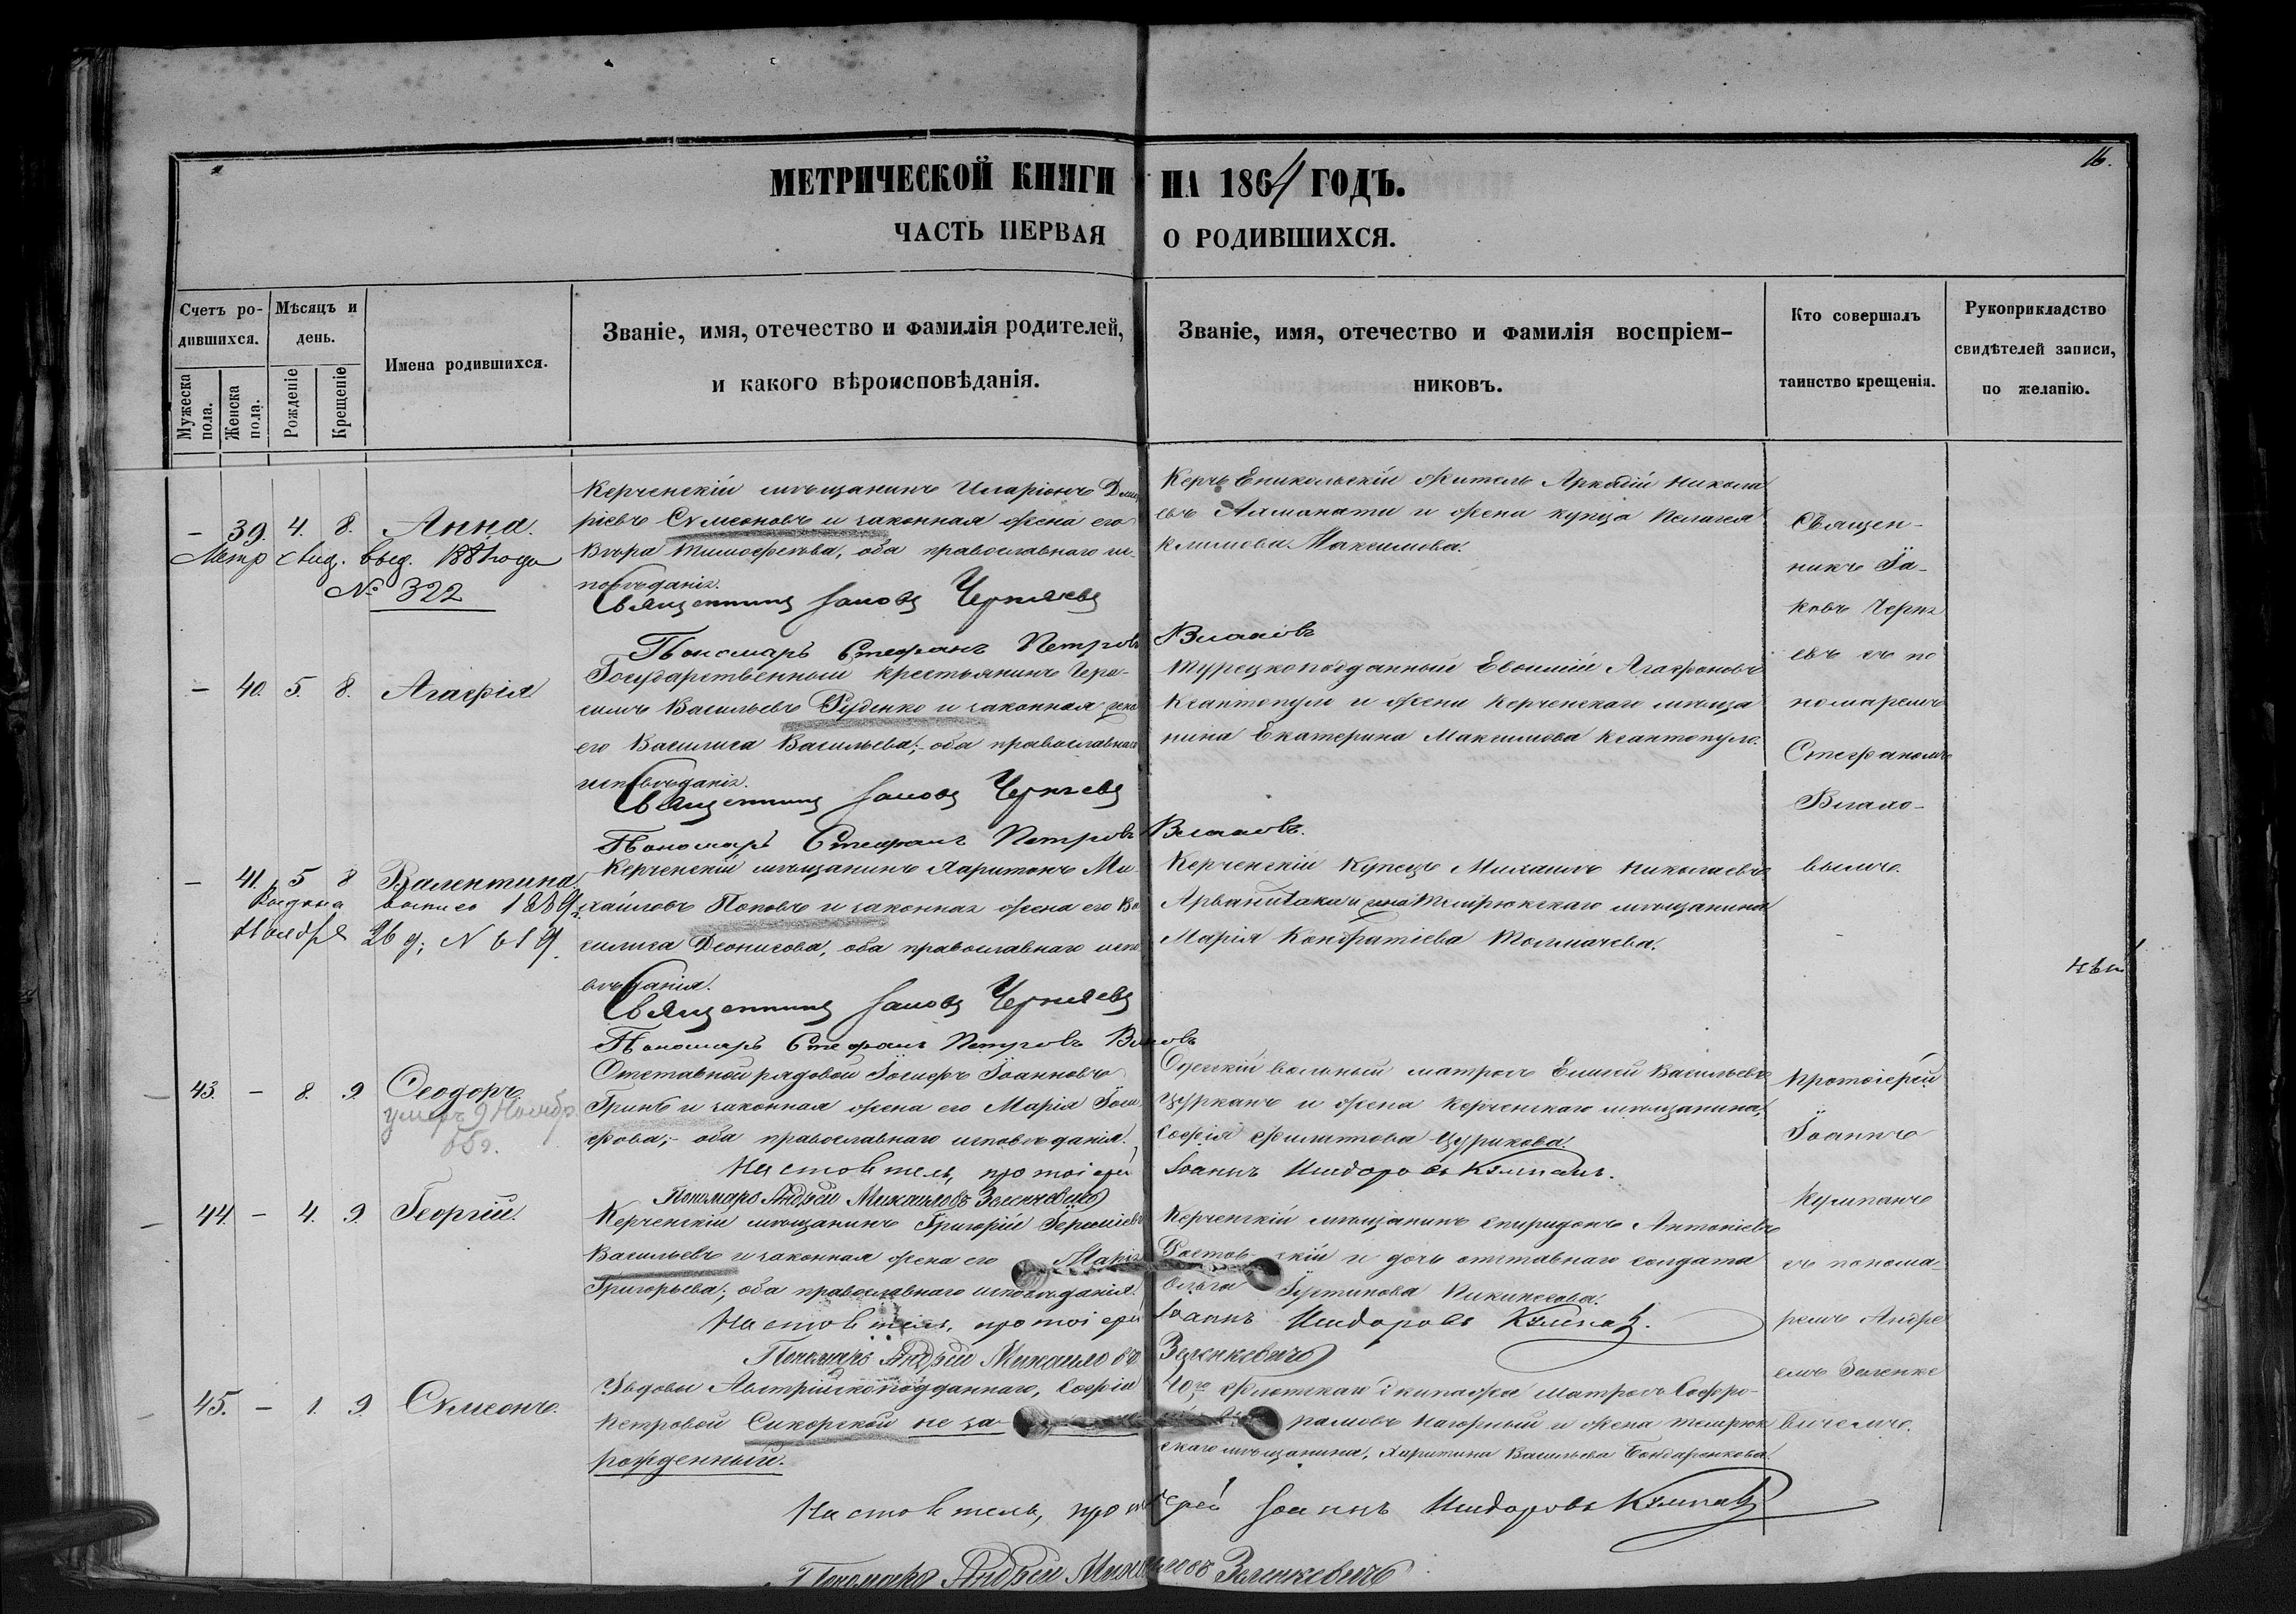 16.
МЕТРИЧЕСКОЙ КНИГИ НА 1864 ГОДЪ.
ЧАСТЬ ПЕРВАЯ О РОДИВШИХСЯ.
Счетъ ро-
дившихся.
Мужеска пола.
Женска пола.
Мѣсяцъ и
день.
Рожденіе
Крещеніе
Имена родившихся.
Званіе, имя, отечество и фамилія родителей,
и какого вѣроисповѣданія.
Званіе, имя, отечество и фамилія воспріем-
никовъ.
Кто совершалъ
таинство крещенія.
Рукоприкладство
свидѣтелей записи,
по желанію.
– 39. 4. 8. Анна.
Метр свид. выд. 1881 года
№ 322
Керченскій мѣщанинъ Иларіонъ Дмит
ріевъ Сѵмеоновъ и законная жена его
Вѣра Тимофеева, оба православнаго ис-
повѣданія.
Священникъ Іаковъ Черняевъ
Пономарь Стефанъ Петровъ Власовъ
Керчь Еникольскій житель Аркадій Никола
евъ Алманати и жена купца Пелагея
Климова Максимова.
Священ-
никъ Іа-
ковъ Черня
евъ съ по
номаремъ
Стефаномъ
Власо-
вымъ.
– 40. 5. 8. Агафія
Государственный крестьянинъ Гера-
симъ Васильевъ Руденко и законная жена
его Василиса Васильева; оба православнаго
исповѣданія.
Священникъ Іаковъ Черняевъ
Пономарь Стефанъ Петровъ Власовъ.
Турецкоподданный Евѳимій Агафоновъ
Ксантопуло и жена Керченскаго мѣща
нина Екатерина Максимова Ксантопуло.
– 41. 5 8 Валентина
Выдана выпись 1889 г.
Ноября 26 д; № 619.
Керченскій мѣщанинъ Харитонъ Ми-
хайловъ Поповъ и законная жена его Ва
силиса Деонисова, оба православнаго испо
вѣданія.
Священникъ Іаковъ Черняевъ
Пономарь Стефанъ Петровъ Власовъ
Керченскій Купецъ Михаилъ Николаевъ
Арванитаки и жена Темрюкскаго мѣщанина
Марія Кондратіева Толмачева.
43. – 8. 9. Ѳеодоръ.
умеръ 9 Ноябр.
Отставной рядовой Іосифъ Іоанновъ
Гринь и законная жена его Марія Іоси-
фова; оба православнаго исповѣданія.
Настоятель, протоіерей Іоаннъ Исидоровъ Кумпанъ.
Пономарь Андрей Михаиловъ Зеленкевичъ
Одесскій вольный матросъ Елисей Васильевъ
Цурканъ и жена Керченскаго мѣщанина,
Софія Филиппова Цурикова.
Протоіерей
Іоаннъ
Кумпанъ
съ понома-
ремъ Андре
емъ Зеленке
вичемъ.
44. – 4. 9. Георгій.
Керченскій мѣщанинъ Григорій
Васильевъ и законная жена его Марія
Григорьева; оба православнаго исповѣданія.
Настоятель, протоіерей Іоаннъ Исидоровъ Кумпанъ.
Пономарь Андрей Михаиловъ Зеленкевичъ
Керченскій мѣщанинъ Спиридонъ Антоніевъ
и дочь отставнаго солдата
Ольга Іустинова
45. – 1. 9. Сѵмеонъ.
Вдовы Австрійскоподданнаго, Софіи
Петровой Сикорской не за-
рожденный.
40го Флотскаго Экипажа матросъ Софро-
Нагорный и жена Темрюк
скаго мѣщанина, Харитина Васильева Бондаренкова.
Настоятель, протоіерей Іоаннъ Исидоровъ Кумпанъ
Пономарь Андрей Михаиловъ Зеленкевичъ